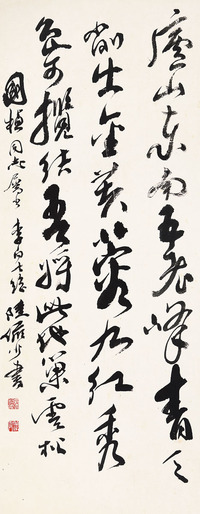 廬山東南五老峰青天
削出金芙蓉九江秀
色可攬結吾將此地巢雲松
國楨同志屬書 李白七絕 陸儼少書